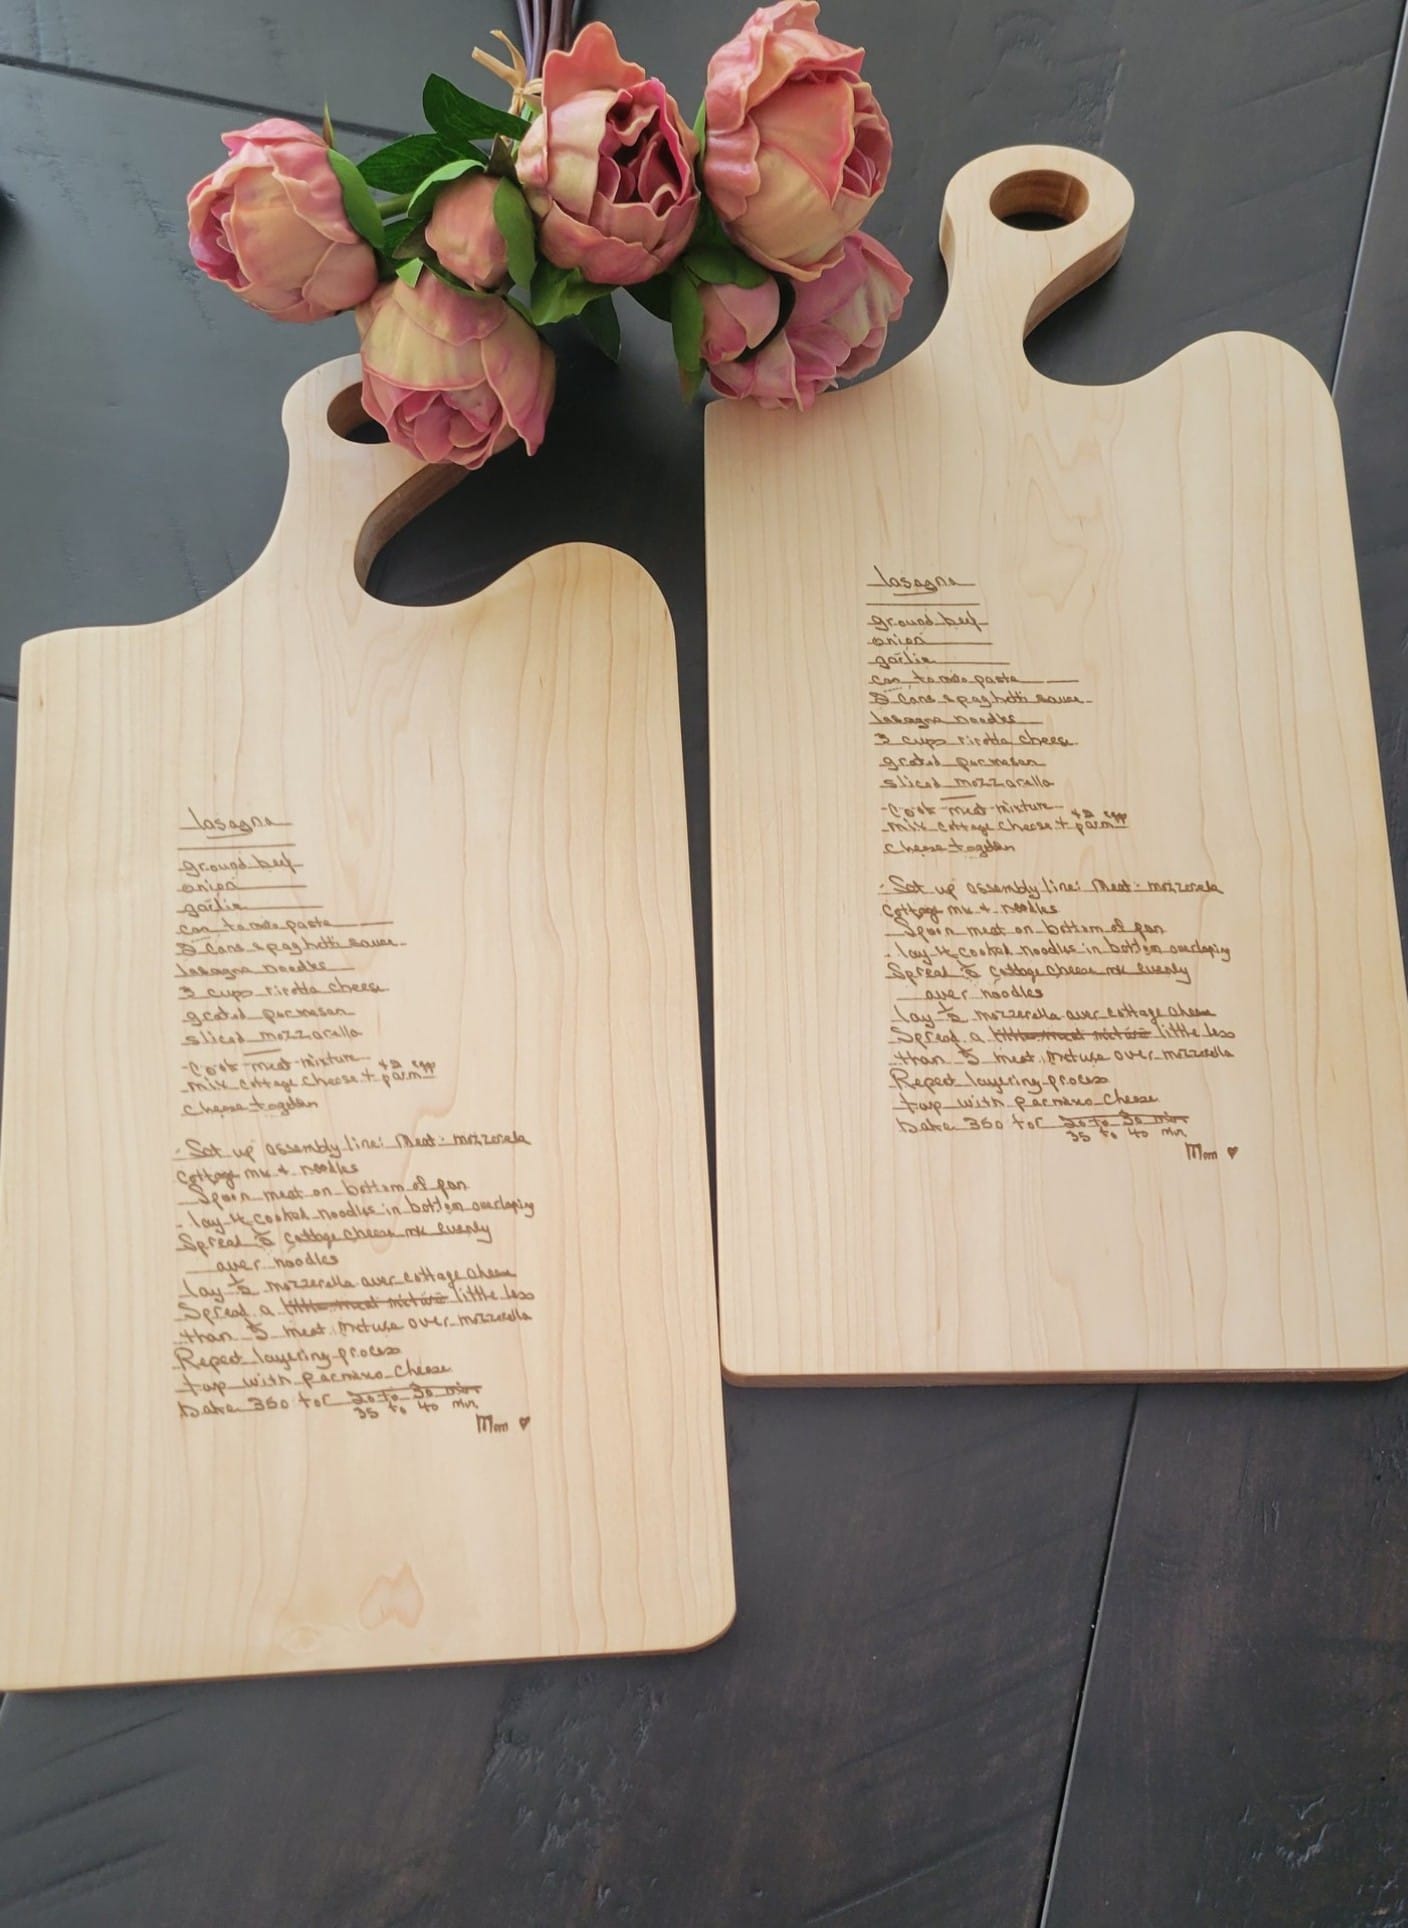 lasagna
ground beef
onion
garlic
can tomato paste
cans spaghetti sauce
lasagna noodles
3 cups ricotta cheese
grated parmesan
sliced mozzarella
- Cook meat mixture
mix cottage cheese + parm + 2 egg
cheese together
- Set up assembly line: Meat - mozzerela
cottage mix + noodles
Spoon meat on bottom of pan
- lay 4 cooked noodles in bottom overlaping
Spread cottage cheese mix evenly
over noodles
lay mozzerella over cottage cheese
Spread a little meat mixture little less
than meat mixture over mozzerella
Repeat layering process
top with cheese
bake 350 for 20 to 30 min
35 to 40 min.
Mom ♥
lasagna
ground beef
onion
garlic
can tomato paste
cans spaghetti sauce
lasagna noodles
3 cups ricotta cheese
grated parmesan
sliced mozzarella
- Cook meat mixture
mix cottage cheese + parm + 2 egg
cheese together
- Set up assembly line: Meat - mozzerela
cottage mix + noodles
Spoon meat on bottom of pan
- lay 4 cooked noodles in bottom overlaping
Spread cottage cheese mix evenly
over noodles
lay mozzerella over cottage cheese
Spread a little meat mixture little less
than meat mixture over mozzerella
Repeat layering process
top with cheese
bake 350 for 20 to 30 min
35 to 40 min.
Mom ♥